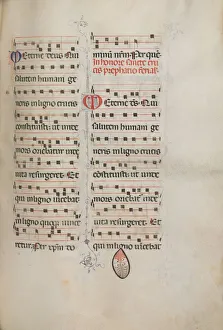 Eterne deus Qui
salutem humani ge
nis in ligno crucis
constituisti ut unde
mors oriebatur inde
vita resurgeret Et
qui in ligno vicebat
per xpm do
minum nrm Per que
in honore sancte cru
cis prephatio ferial
Eterne ds Qui
salutem humani ge
in ligno crucis
constituisti ut unde
mors oriebatur inde
vita resurgeret Et
qui in ligno vicebat